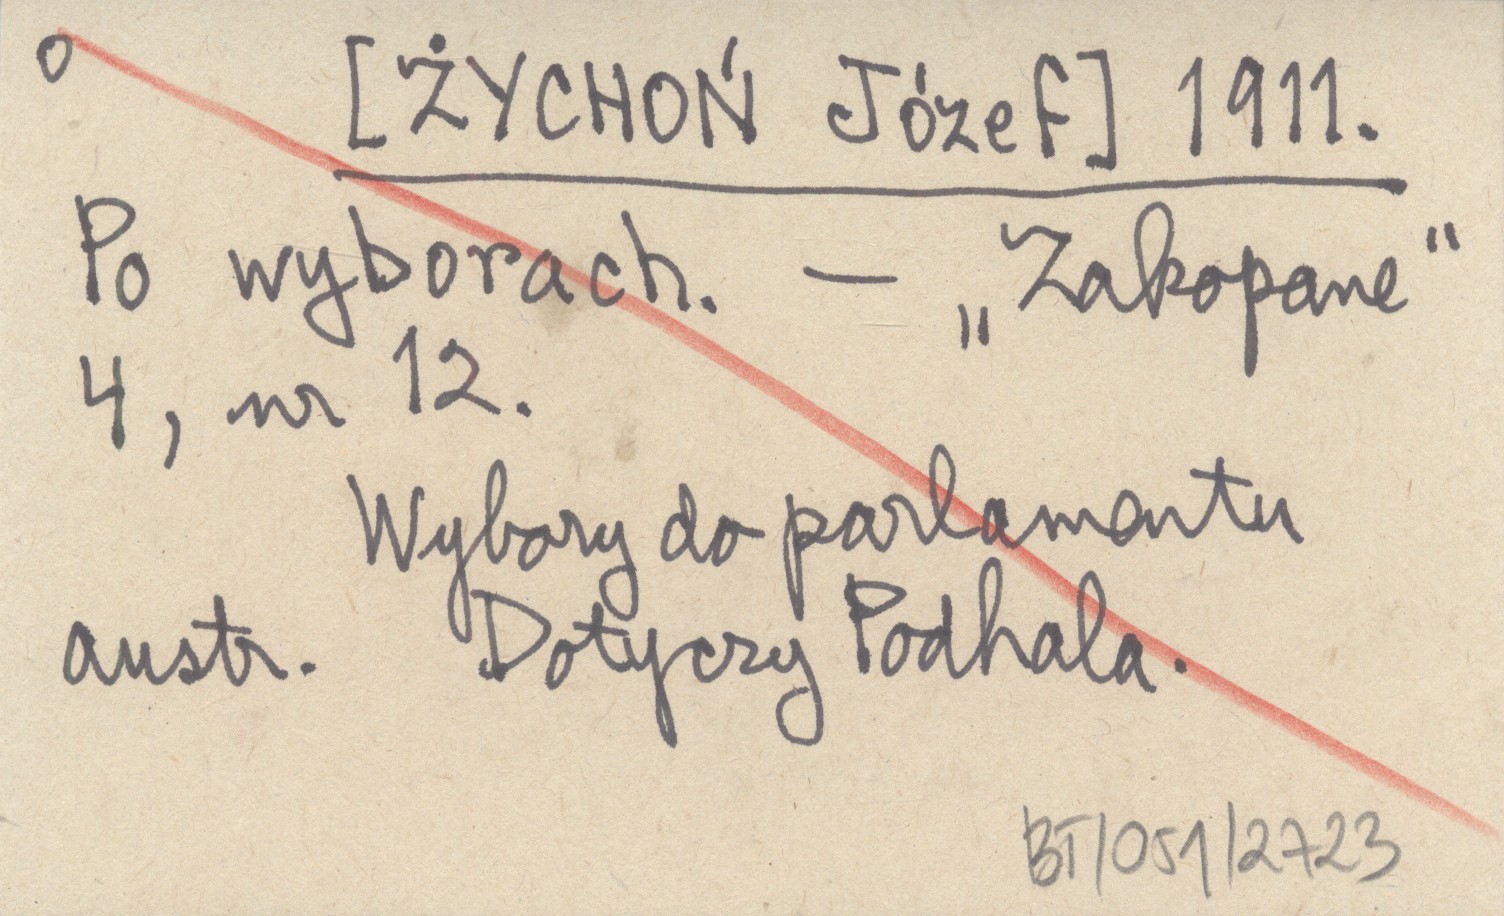 o [ŻYCHOŃ Józef] 1911.
Po wyborach. — „Zakopane“
4, nr 12.
Wybory do parlamentu
austr. Dotyczy Podhala.
BT/051/2723